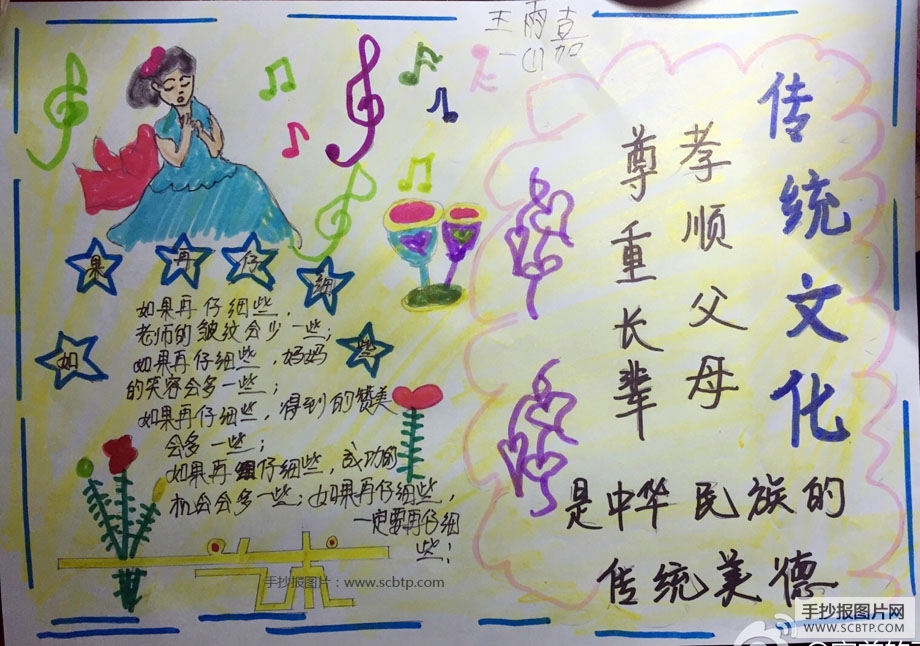 王雨嘉
一(1)
如果再仔细些
如果再仔细些，
老师的皱纹会少一些；
如果再仔细些，妈妈
的笑容会多一些；
如果再仔细些，得到的赞美
会多一些；
如果再仔细些，成功的
机会会多一些；如果再仔细些，
一定要再仔细
些；
传统文化
孝顺父母
尊重长辈
是中华民族的
传统美德
手抄报图片：www.scbtp.com
手抄报图片网
WWW.SCBTP.COM